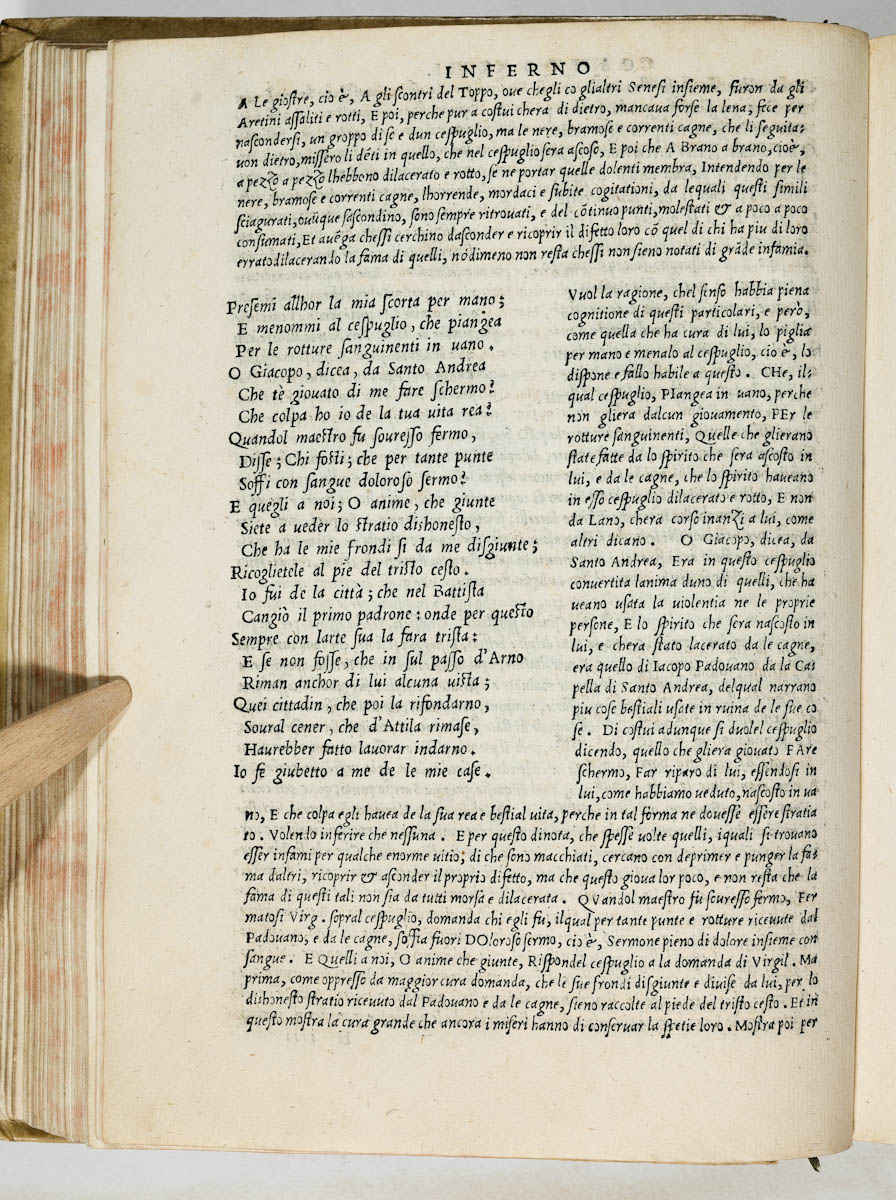 INFERNO
A Le giostre, cio è, A gli scontri del Toppo, oue chegli co glialtri Senesi insieme, furon da gli
Aretini assaliti e rotti, E poi, perche pur a costui chera di dietro, mancaua forse la lena, fece per
nascondersi, un groppo di se e dun cespuglio, ma le nere, bramose e correnti cagne, che li seguita-
uon dietro, missero li dēti in quello, che nel cespuglio sera ascoso, E poi che A Brano a brano, cioè,
a pezzo a pezzo lhebbono dilacerato e rotto, se ne portar quelle dolenti membra, Intendendo per le
nere, bramose e correnti cagne, lhorrende, mordaci e subite cogitationi, da lequali questi simili
sciagurati, ouūque sascondino, sono sempre ritrouati, e del cōtinuo punti, molestati & a poco a poco
consumati, Et auēga chessi cerchino dasconder e ricoprir il difetto loro cō quel di chi ha piu di loro
errato dilacerando la fama di quelli, nōdimeno non resta chessi non sieno notati di grāde infamia.
Presemi allhor la mia scorta per mano;
E menommi al cespuglio, che piangea
Per le rotture sanguinenti in uano.
O Giacopo, dicea, da Santo Andrea
Che tè giouato di me fare schermo?
Che colpa ho io de la tua uita rea?
Quandol maestro fu souresso fermo,
Disse; Chi fosti; che per tante punte
Soffi con sangue doloroso sermo?
E quegli a noi; O anime, che giunte
Siete a ueder lo stratio dishonesto,
Che ha le mie frondi si da me disgiunte;
Ricoglietele al pie del tristo cesto.
Io fui de la città; che nel Battista
Cangiò il primo padrone: onde per questo
Sempre con larte sua la fara trista:
E se non fosse, che in sul passo d'Arno
Riman anchor di lui alcuna uista;
Quei cittadin, che poi la rifondarno,
Soural cener, che d'Attila rimase,
Haurebber fatto lauorar indarno.
Io fe giubetto a me de le mie case.
Vuol la ragione, chel senso habbia piena
cognitione di questi particolari, e però,
come quella che ha cura di lui, lo piglia
per mano e menalo al cespuglio, cio è, lo
dispone e fallo habile a questo. CHe, il-
qual cespuglio, PIangea in uano, perche
non gliera dalcun giouamento, PEr le
rotture sanguinenti, Quelle che glierano
state fatte da lo spirito che sera ascosto in
lui, e da le cagne, che lo spirito haueano
in esso cespuglio dilacerato e rotto, E non
da Lano, chera corso inanzi a lui, come
altri dicano. O Giacopo, dicea, da
Santo Andrea, Era in questo cespuglio
conuertita lanima duno di quelli, che ha
ueano usata la uiolentia ne le proprie
persone, E lo spirito che sera nascosto in
lui, e chera stato lacerato da le cagne,
era quello di Iacopo Padouano da la Ca-
pella di Santo Andrea, delqual narrano
piu cose bestiali usate in ruina de le sue co
se. Di costui adunque si duolel cespuglio
dicendo, quello che gliera giouato FAre
schermo, Far riparo di lui, essendosi in
lui, come habbiamo ueduto, nascosto in ua
no, E che colpa egli hauea de la sua rea e bestial uita, perche in tal forma ne douesse essere stratia
to. Volendo inferire che nessuna. E per questo dinota, che spesse uolte quelli, iquali si trouano
esser infami per qualche enorme uitio; di che sono macchiati, cercano con deprimer e punger la fa-
ma daltri, ricoprir & asconder il proprio difetto, ma che questo gioua lor poco, e non resta che la
fama di questi tali non sia da tutti morsa e dilacerata. QVandol maestro fù souresso fermo, Fer
matosi Virg. sopral cespuglio, domanda chi egli fu, ilqual per tante punte e rotture riceuute dal
Padouano, e da le cagne, soffia fuori DOloroso sermo, cio è, Sermone pieno di dolore insieme con
sangue. E Quelli a noi, O anime che giunte, Rispondel cespuglio a la domanda di Virgil. Ma
prima, come oppresso da maggior cura domanda, che le sue frondi disgiunte e diuise da lui, per lo
dishonesto stratio riceuuto dal Padouano e da le cagne, sieno raccolte al piede del tristo cesto. Et in
questo mostra la cura grande che ancora i miseri hanno di conseruar la spetie loro. Mostra poi per